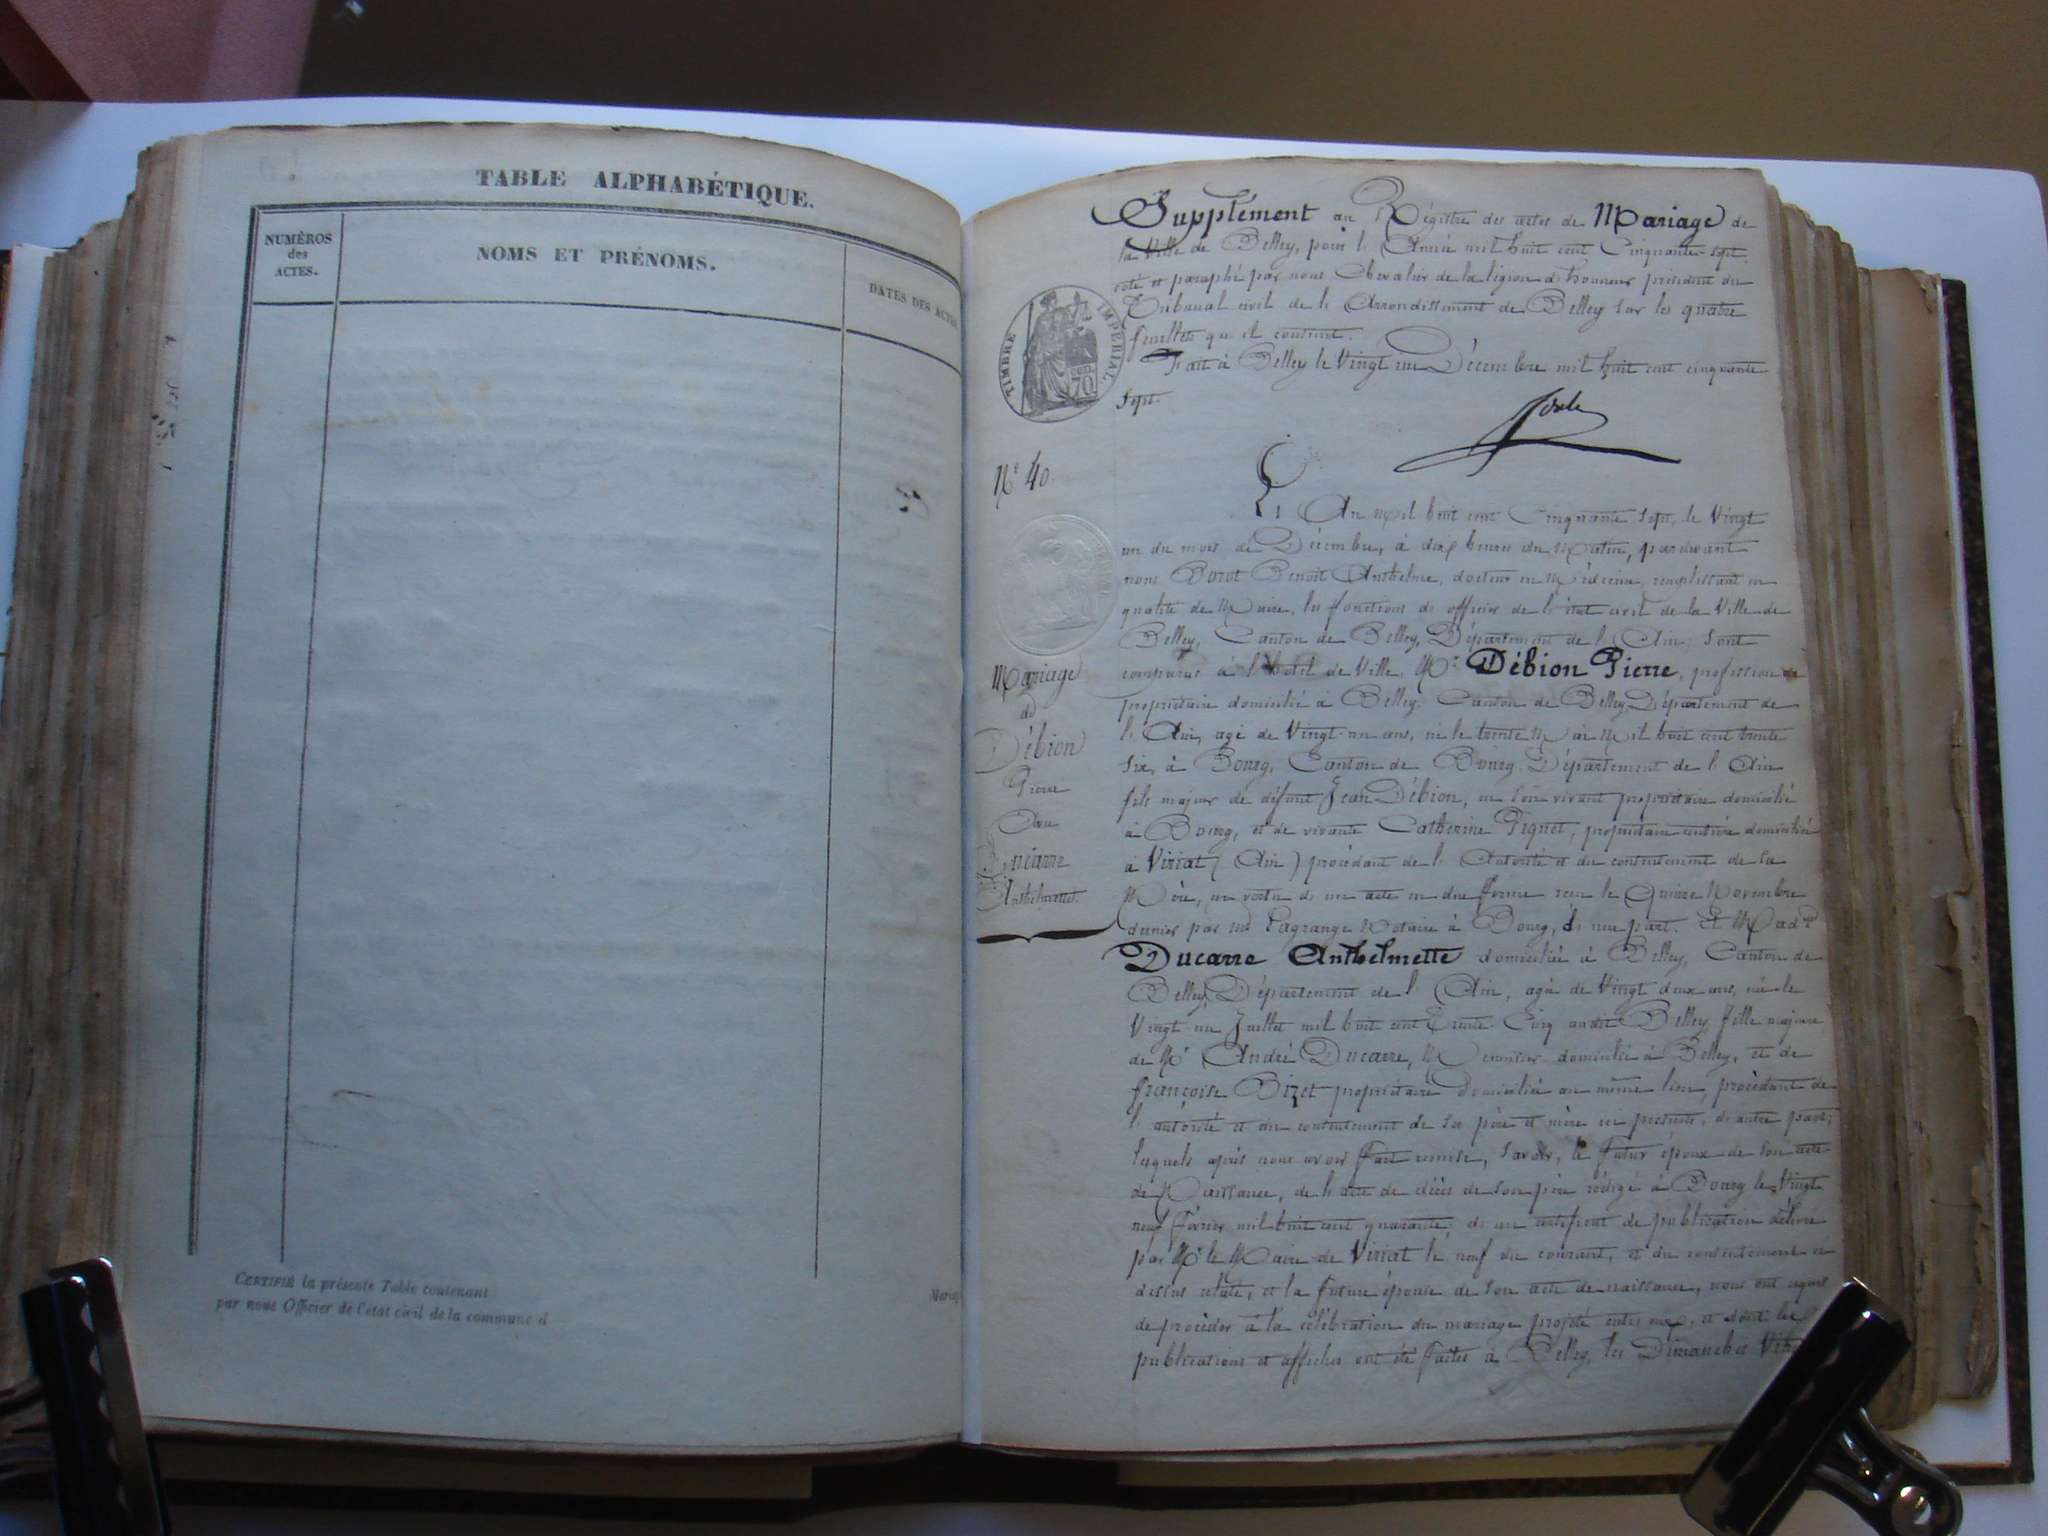 TABLE ALPHABÉTIQUE.
NUMÉROS
des
ACTES.
NOMS ET PRÉNOMS.
DATES DES ACTES
CERTIFIÉ la présente Table contenant
par nous Officier de l'état civil de la commune d
Supplément au Régistre des actes de Mariage de
la Ville de Belley, pour l'Année mil huit cent Cinquante-sept.
coté et paraphé par nous Chevalier de la légion d'honneur président du
Tribunal civil de l'Arrondissement de Belley sur les quatre
feuillets qu'il contient.
Fait à Belley le Vingt un Décembre mil huit cent cinquante
Sept.
TIMBRE IMPÉRIAL
70
N° 40.
L'An mil huit cent Cinquante Sept, le Vingt
un du mois de Décembre, à dix heures du Matin, pardevant
nous Benoit Anthelme, docteur en Médecine, remplissant en
qualité de Maire, les fonctions d'officier de l'état civil de la Ville de
Belley, Canton de Belley, Département de l'Ain, sont
comparus à l'hotel de Ville, Mr Débion Pierre, profession de
propriétaire domicilié à Belley, Canton de Belley, Département de
l'Ain, agé de Vingt-un ans, né le trente Mai Mil huit cent trente
six, à Bourg, Canton de Bourg, Département de l'Ain
fils majeur de défunt Jean Débion, en son vivant propriétaire domicilié
à Bourg, et de vivante Catherine Piquet, propriétaire rentière domiciliée
à Viriat (Ain) procédant de l'Autorité et du consentement de sa
Mère, en vertu d'un acte en due forme reçu le Quinze Novembre
dernier par Me Lagrange Notaire à Bourg, d'une part. Et Madlle
Ducarre Anthelmette domiciliée à Belley, Canton de
Belley, Département de l'Ain, agée de Vingt deux ans, née le
Vingt un Juillet mil huit cent Trente-Cinq audit Belley, fille majeure
de Mr André Ducarre, Menuisier domicilié à Belley, et de
françoise Bizet propriétaire domiciliée au même lieu, procédant de
l'autorité et du consentement de ses père et mère ici présents, d'autre part;
lesquels après nous avoir fait remise, savoir, le futur époux de son acte
de Naissance, de l'acte de décès de son père rédigé à Bourg le Vingt
neuf février mil huit cent quarante; d'un certificat de publication délivré
par Mr le Maire de Viriat le neuf du courant, et du consentement ci
dessus relaté, et la future épouse de son acte de naissance, nous ont requis
de procéder à la célébration du mariage projeté entre eux, et dont les
publications et affiches ont été faites à Belley, les Dimanches
Mariage
de
Débion
Pierre
Avec
Ducarre
Anthelmette.